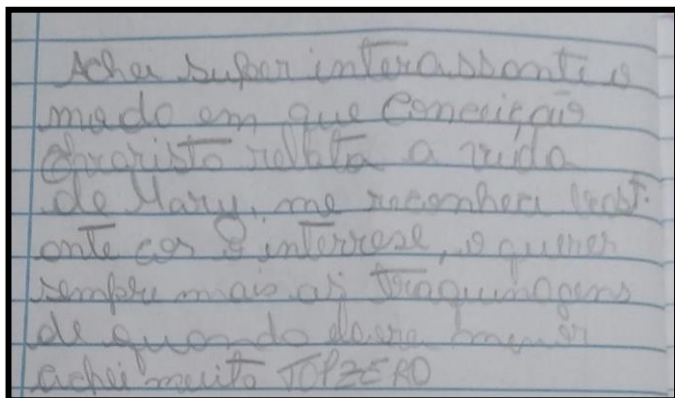 Achei super interassonti o
modo em que Conceição
Evaristo relata a vida
de Mary, me reconheci bast.
ante com o interrese, o querer
sempre mais as traquinagens
de quando era menor
achei muito TOPZERO